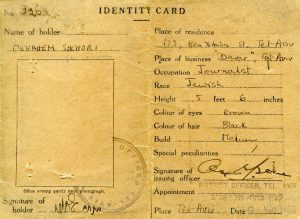 IDENTITY CARD
No
Name of holder
MENAHEM
Office stamp partly over photograph.
Signature of
holder
Place of residence
Ben Yehuda St. Tel-Aviv
Place of business "Davar", Tel Aviv
Occupation Journalist
Race Jewish
Height 5 feet 6 inches
Colour of eyes Brown
Colour of hair Black
Build Medium
Special peculiarities
Signature of
issuing officer
DISTRICT OFFICER, TEL AVIV
Appointment
Place Tel-Aviv Date